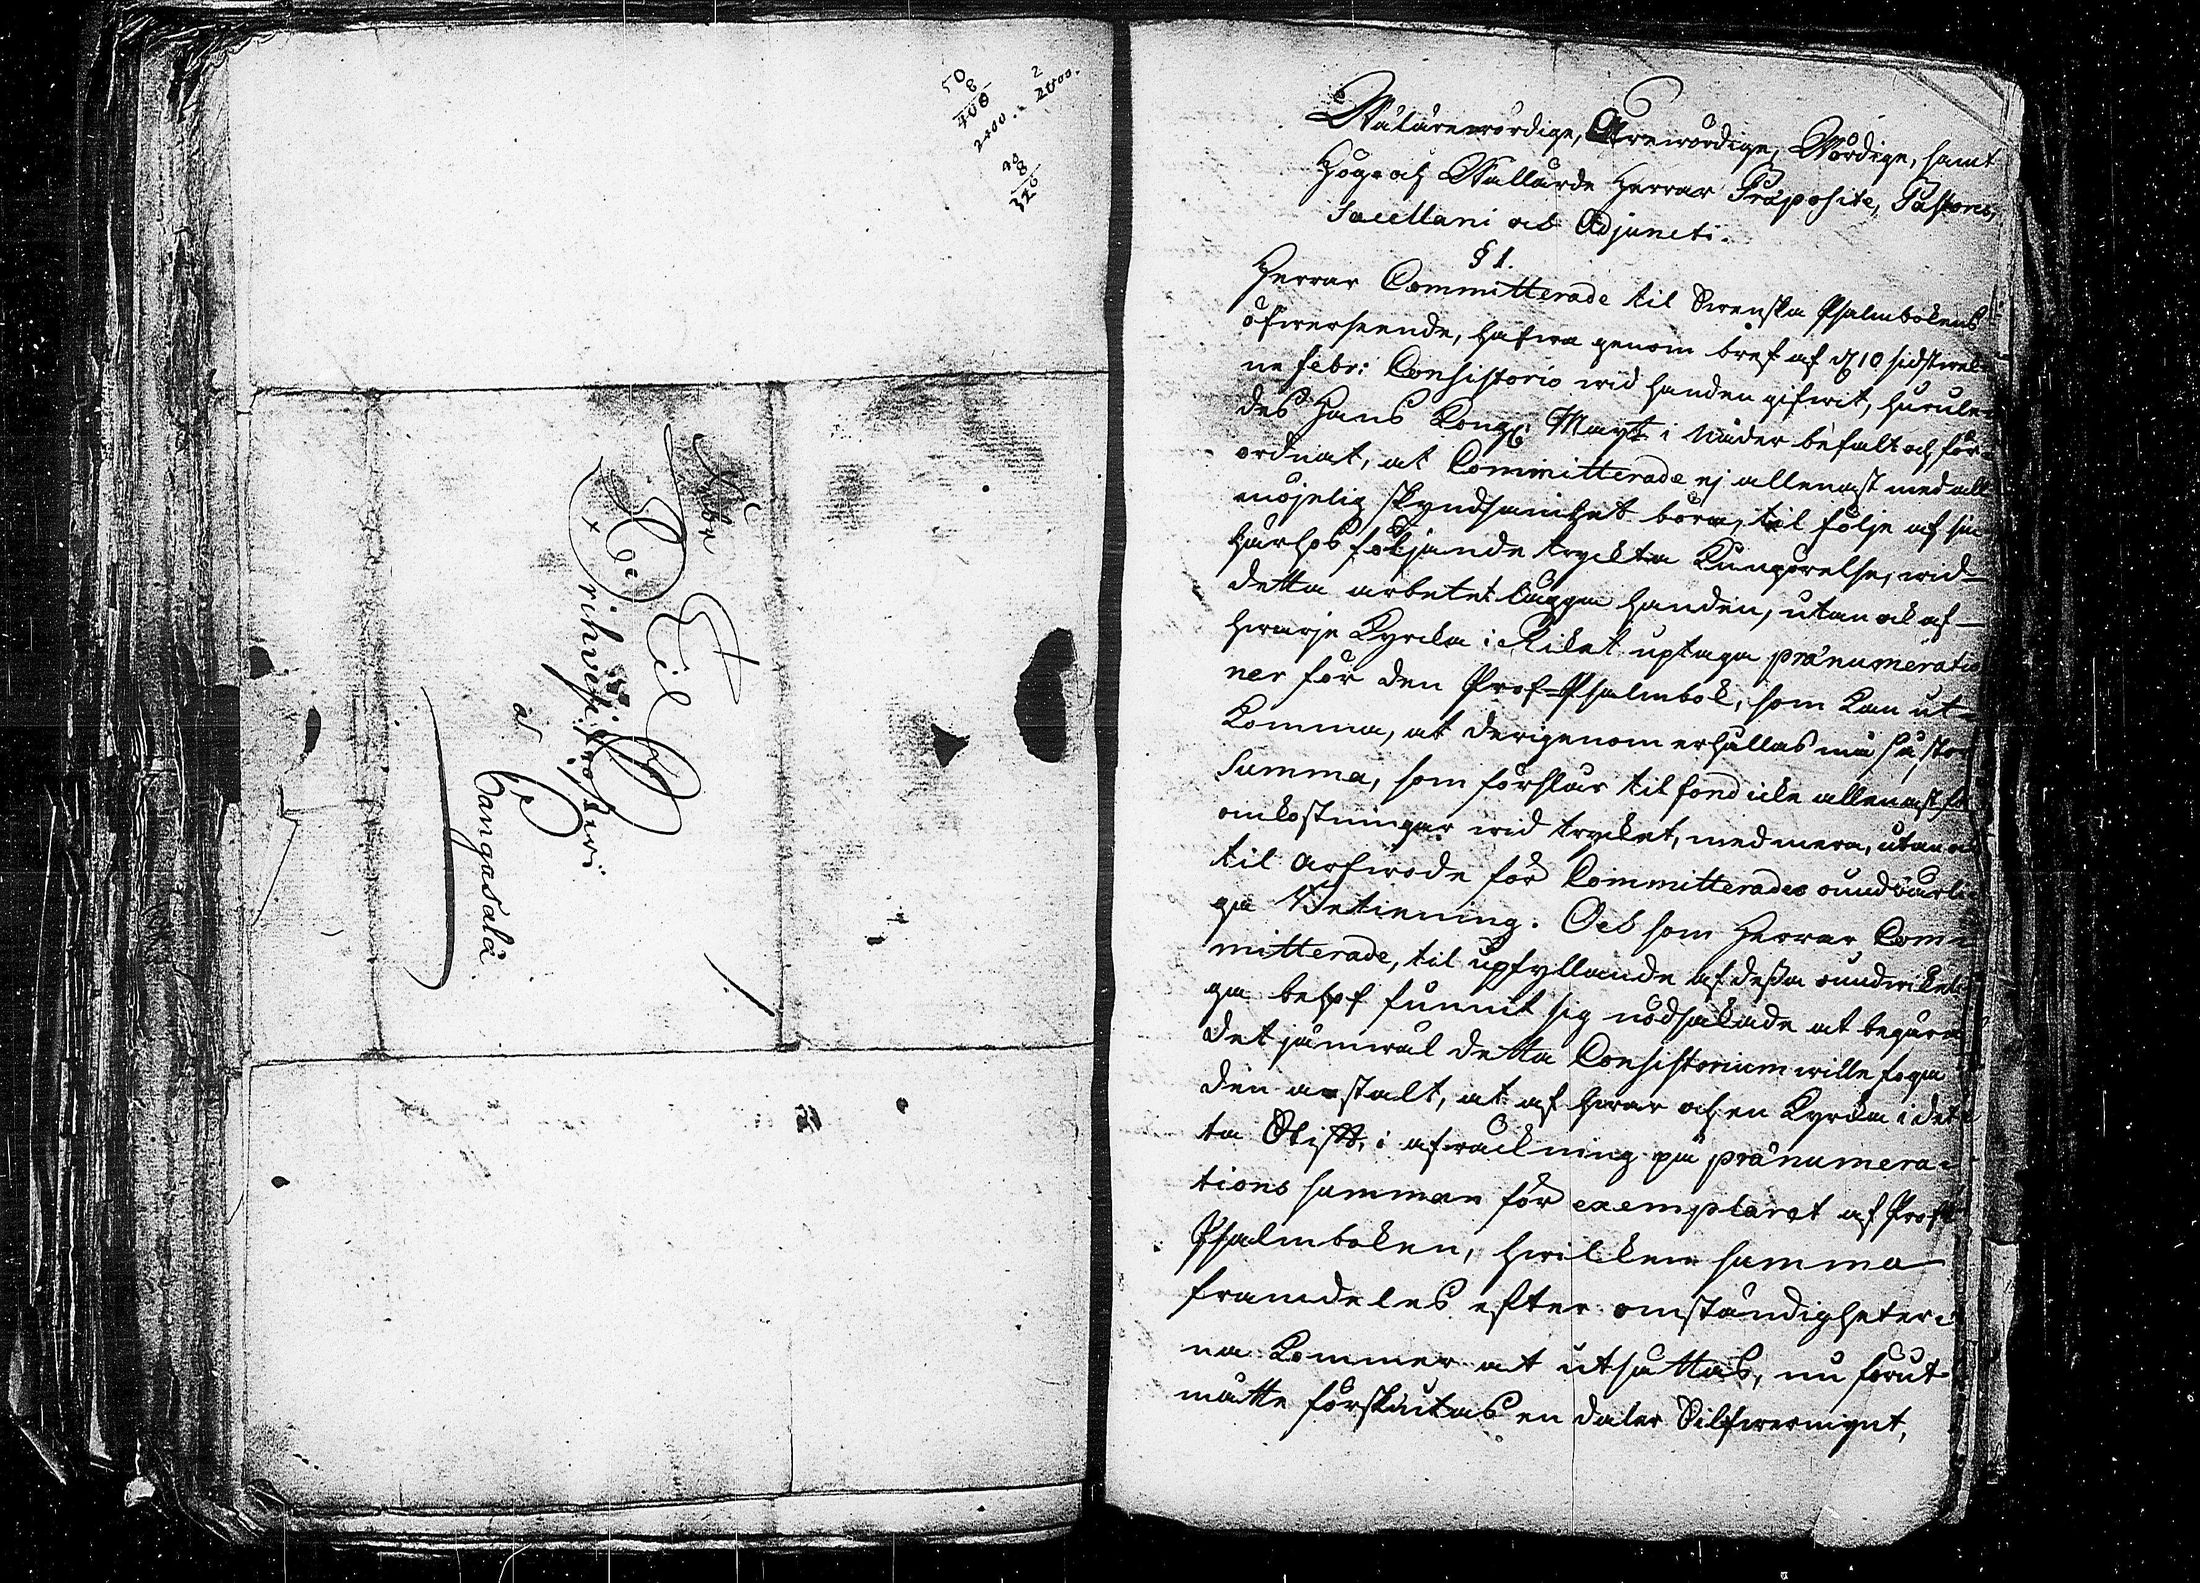 50
8
400
2400.
2
2400.
8
Til
å
Cangasala
Wälärewördige, Ärewördige, Wördige, samt
Hög- och Wällärde Herrar Præposite, Pastores,
Sacellani och Adjuncti.
§ 1.
Herrar Committerade til Swenska Psalmbokens
öfwerseende, hafwa genom bref af d 10 sidstwek-
ne febr: Consistorio wid handen gifwit, hurule-
des Hans Kongl: Mayt i Nåder befalt och för-
ordnat, at Committerade ej allenast med all
möjelig skyndsamhet böra, til följe af
härhos följande tryckta Kungörelse, wid
detta arbetet lägga handen, utan ock af
hwarje Kyrcka i Riket uptaga prænumeratio
ner för den Prof-Psalmbok, som kan ut-
komma, at derigenom erhållas må så stor
Summa, som förslår til fond icke allenast för
omkostningar wid trycket, med mera, utan ock
til arfwode för Committerades oundvärli-
ga Betiening. Och som Herrar Com-
mitterade, til upfyllande af dessa oundwikeli
ga behof funnit sig nödsakade at begära
det jämwäl detta Consistorium wille foga
den anstalt, at af hwar och en Kyrcka i det-
ta Stift, i afräckning på prænumera-
tions summan för exemplaret af Prof
Psalmboken, hwilken summa
framdeles efter omständigheter-
na kommer at utsättas, nu förut
måtte förskiutas en daler Silfwermynt,